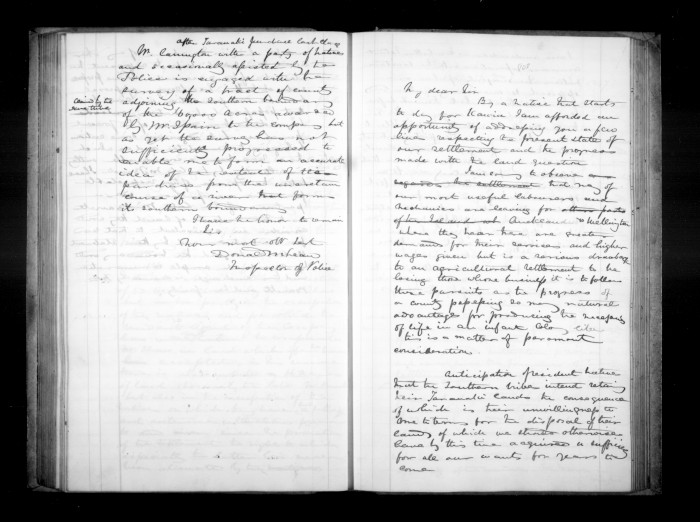 after Taranaki purchase
Mr. Carrington with a party of natives
and occasionally assisted by the
Police is engaged with the
survey of a tract of country
adjoining the Southern boundary
claimed by the
same tribe
of the 60,000 Acres awarded
by Mr Spain to the company but
as yet the survey has not
sufficiently progressed to
enable me to form an accurate
idea of the contents of the
purchase from the uncertain
course of a river that forms
its southern boundary
I have the honor to remain
Sir
Your most obt Sert
Donald McLean
Inspector of Police
My dear Sir
By a Native that starts
to day for Kawia I am afforded an
opportunity of addressing you a few
lines respecting the present state of
our settlement and the progress
made with the land question
I am sorry to observe
regards the settlement that many of
our most useful labourers and
mechanics are leaving for other parts
of the Island Auckland & Wellington
where they hear there are greater
demands for their services and higher
wages given but is a serious drawback
to an agricultural settlement to be
losing those whose business it is to follow
these pursuits as the progress of
a country possessing so many natural
advantages for producing the necessary
of life in an infant Colony
this is a matter of paramount
consideration.
Anticipation of resident natives
that the Southern tribes intend retaining
their Taranaki lands the consequence
of which is their unwillingness to
come to terms for the disposal of their
lands of which we otherwise
have by this time acquired a sufficiency
for all our wants for years to
come